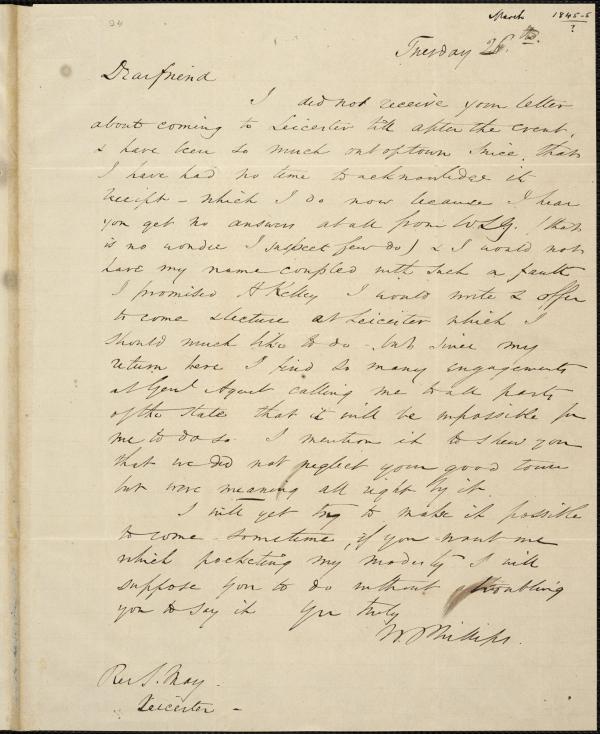 24
March 1845-6
?
Tuesday 26th.
Dear friend
I did not receive your letter
about coming to Leicester till after the event,
& have been so much out of town since that
I have had no time to acknowledge its
receipt - which I do now because I hear
you get no answers at all from WLG. (that
is no wonder I suspect few do) & I would not
have my name coupled with such a fault
I promised A Kelley I would write & offer
to come & lecture at Leicester which I
should much like to do - but since my
return here I find so many engagements
as Genl Agent calling me to all parts
of the state that it will be impossible for
me to do so. I mention it to shew you
that we did not neglect your good town
but were meaning all right by it.
I will yet try to make it possible
to come - sometime, if you want me
which pocketing my modesty I will
suppose you to do without troubling
you to say it Yrs truly
W. Phillips.
Rev S. May.
Leicester -